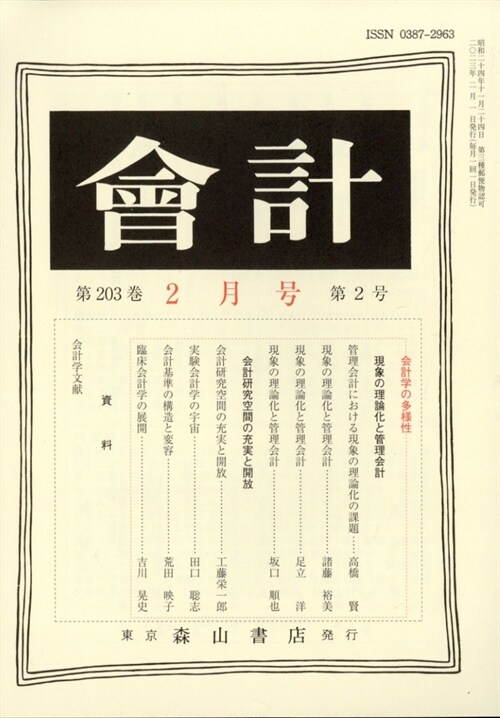 ISSN 0387-2963
昭和二十四年十一月二十四日 第三種郵便物認可
二〇二三年二月一日発行(毎月一回一日発行)
會計
第203巻 2月号 第2号
会計学の多様性
現象の理論化と管理会計
管理会計における現象の理論化の課題…高橋 賢
現象の理論化と管理会計…………諸藤 裕美
現象の理論化と管理会計…………足立 洋
現象の理論化と管理会計…………坂口 順也
会計研究空間の充実と開放
会計研究空間の充実と開放…………工藤栄一郎
実験会計学の宇宙…………田口 聡志
会計基準の構造と変容…………荒田 映子
臨床会計学の展開…………吉川 晃史
資料
会計学文献
東京 森山書店 発行